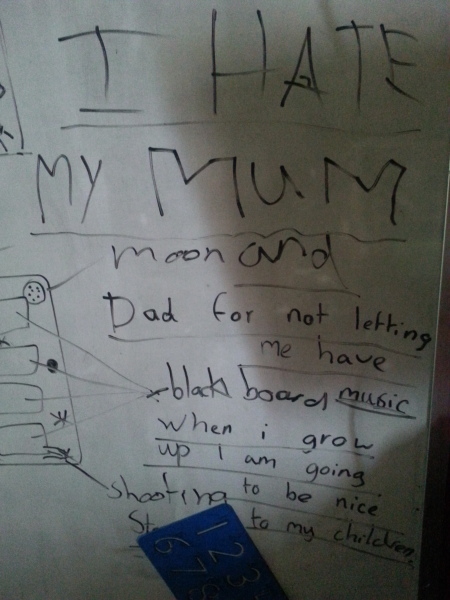 I HATE
MY MUM
moon and
Dad for not letting
me have
black board music
When i grow
up I am going
shooting to be nice
to my children.
1 2 3
6 7 8